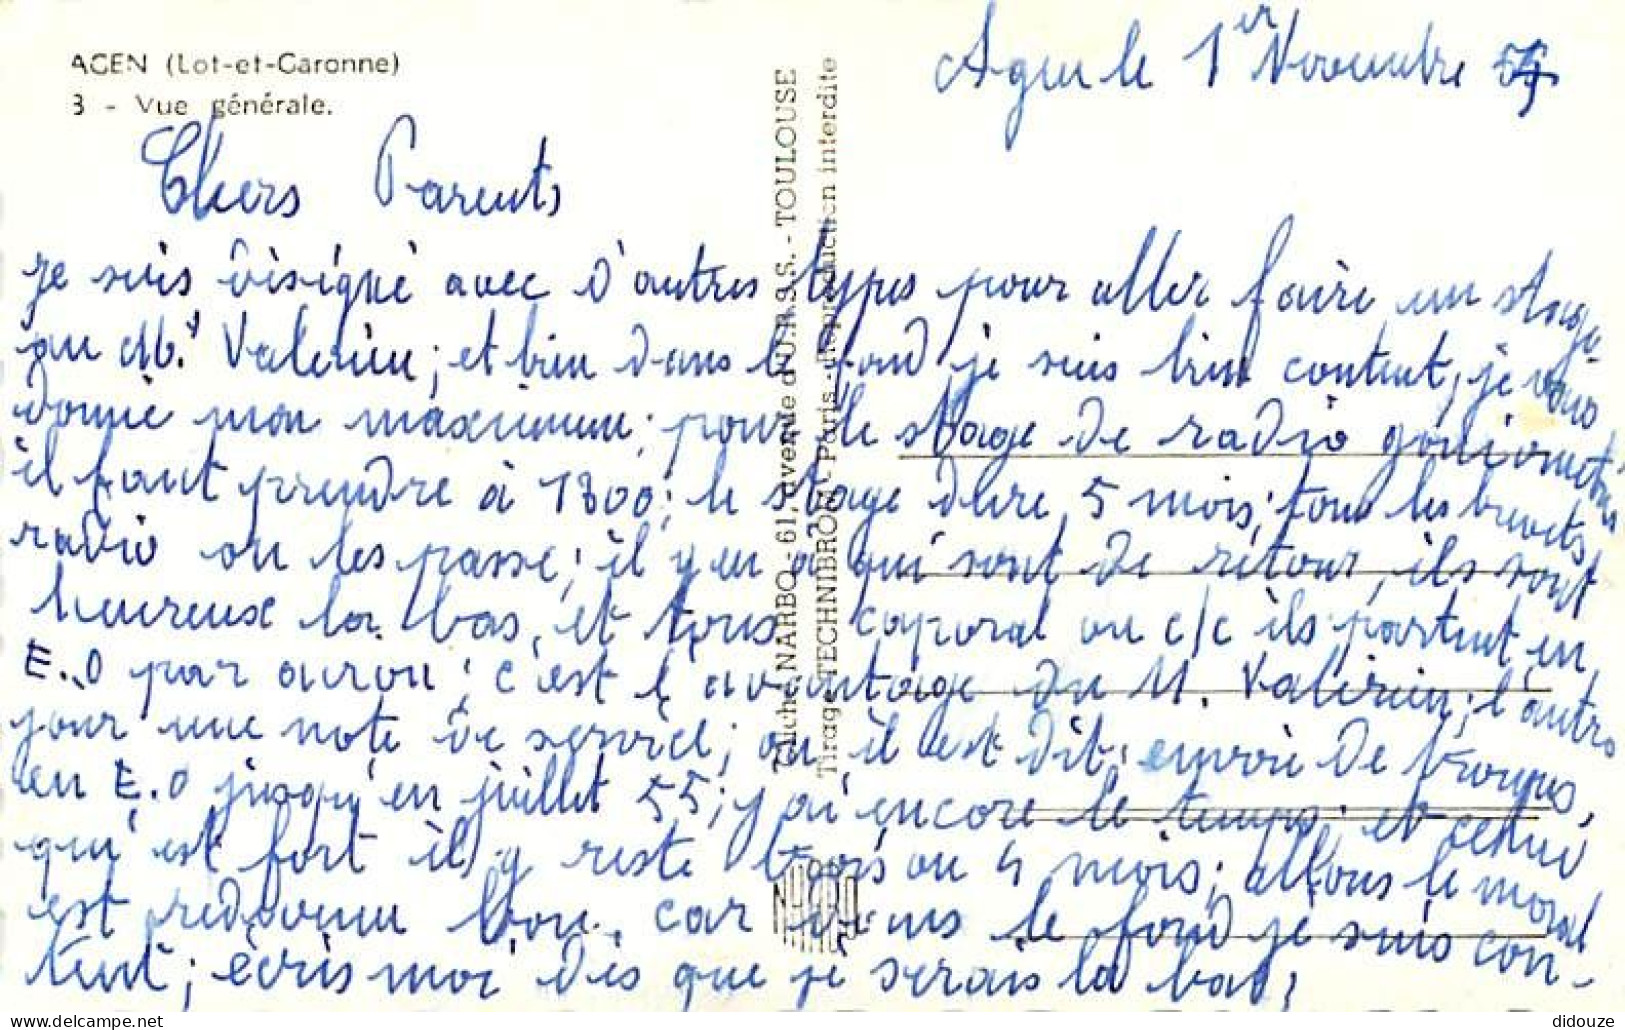 AGEN (Lot-et-Garonne)
3 - Vue générale.
Agen le 1er Novembre
Chers Parents
je suis désigné avec d'autres types pour aller faire un stage
au Mt Valérien; et bien dans le fond je suis bien content, je vous
donne mon maximum; pour le stage de radio goniométrie
il faut prendre à 1300; le stage dure 5 mois; tous les brevets
radio on les passe; il y en a qui sont de retour, ils sont
heureux la bas, et tous caporal ou c/c ils partent en
E.O par avion; c'est l'avantage du M. Valérien; l'autre
jour une note de service; ou il est dit: envoi de troupes,
en E.O jusqu'en juillet 55; j'ai encore le temps; et celui
qui est fort il y reste trois ou 4 mois; allons le moral
est redevenu bon, car dans le fond je suis con-
tent; écris moi dès que je serais la bas;
Cliché NARBO - 61, avenue d'U.R.S.S. - TOULOUSE
Tirage TECHNIBROM - Paris - Reproduction interdite
delcampe.net
didouze